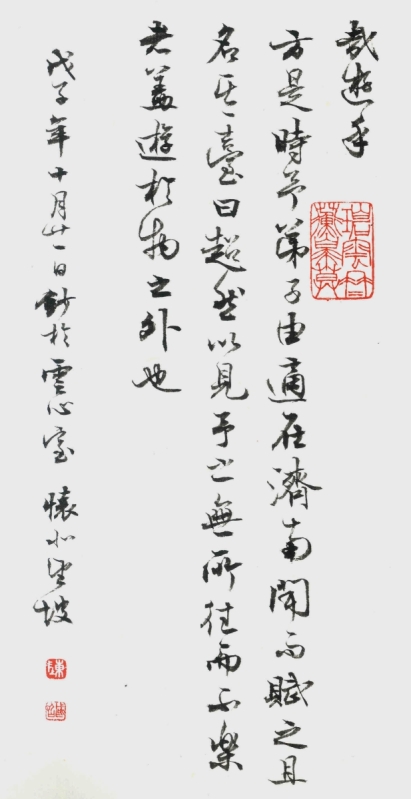 哉遊乎
方是時予弟子由適在濟南聞而賦之且
名其臺曰超然以見予之無所往而不樂
者蓋遊於物之外也
戊子年十月廿一日鈔於雲心室 懷
坡
陳